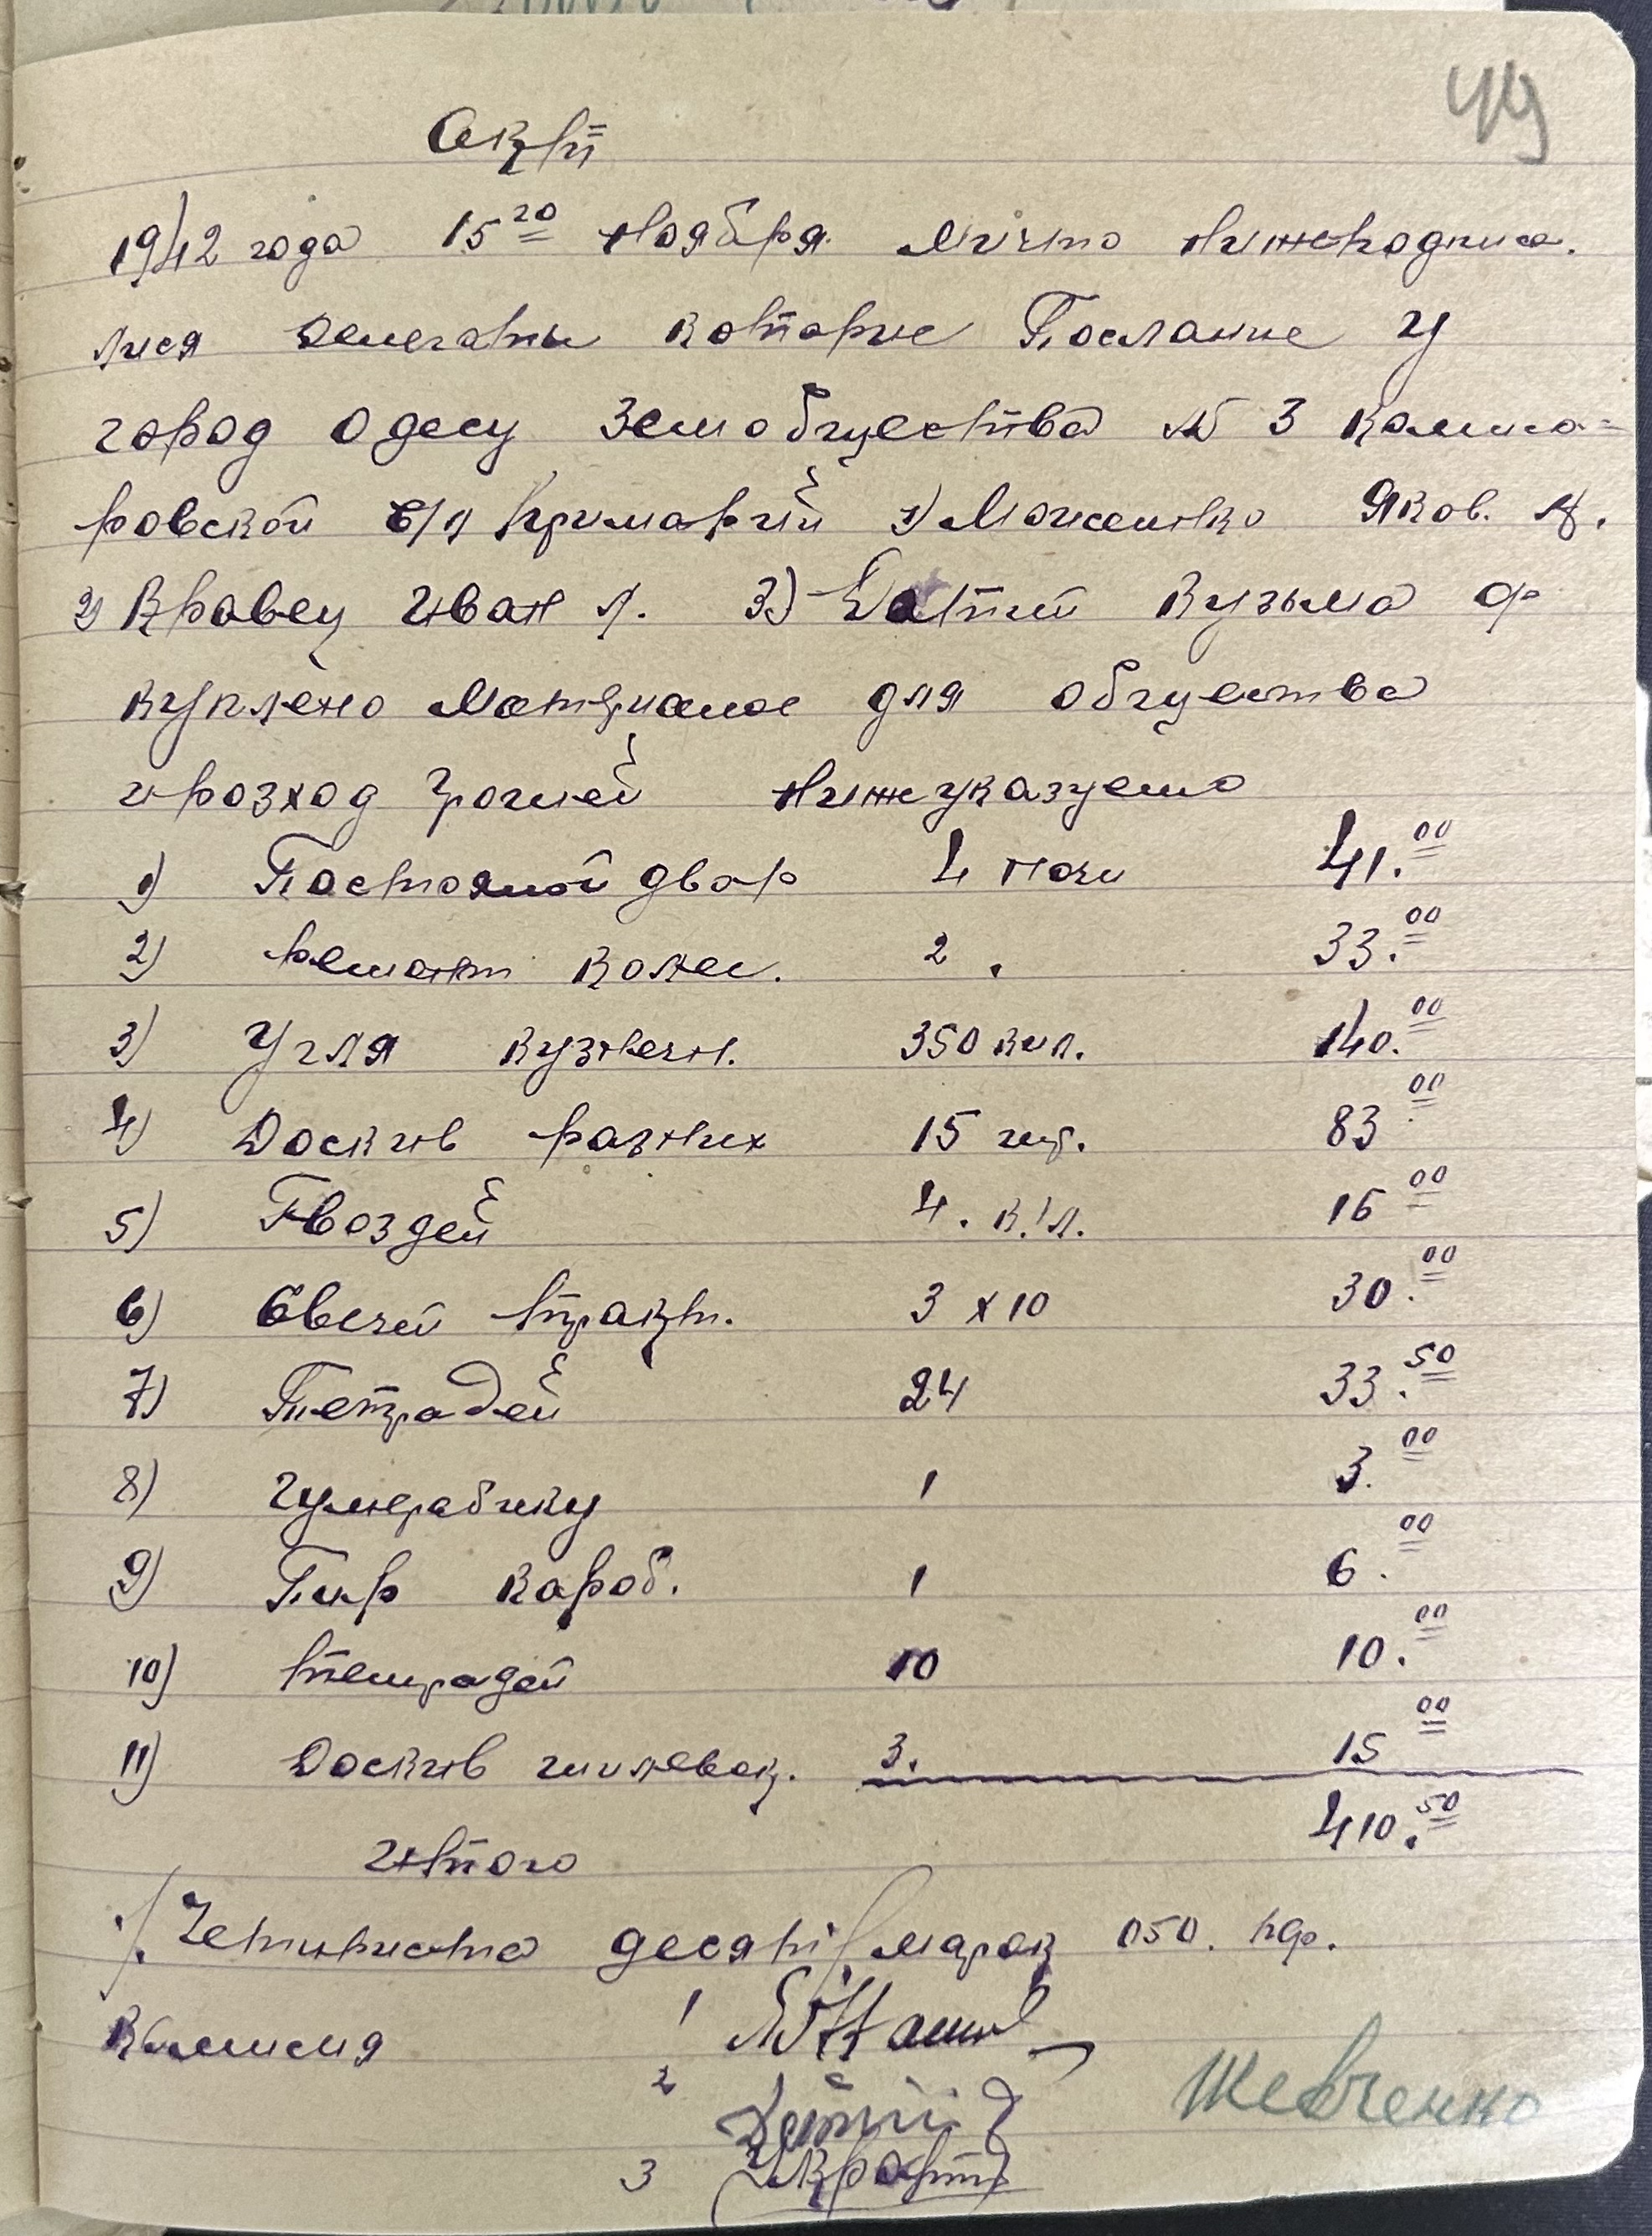 49
Акт
1942 года 15го Ноября. Мичто Нижеподписа.
лися Делегаты которые Посланые У
город Одесу Земобщества № 3 Комиса=
ровской с/п Примарий 1) Моисеенко Яков. А.
2) Кравец Иван Л. 3) Кузьма Ф
куплено Матриалов для общества
и розход грошей Нижеуказуемо
1) Постояной двор 4 ночи 41.00
2) Ремонт колес. 2. 33.00
3) Угля кузнечн. 350 кил. 140.00
4) Доскив разних 15 шт. 83 00
5) Гвоздей 4. кил. 16 00
6) Свечей тракт. 3 х 10 30.00
7) Тетрадей 24 33.50
8) Гумерабику 1 3.00
9) Пир короб. 1 6.00
10) тетрадей 10 10.00
11) Доскив шилевок. 3. 15 00
410.50
Итого
/Четириста десять/ марок 050. пф.
Комисия 1
2
Шевченко
3